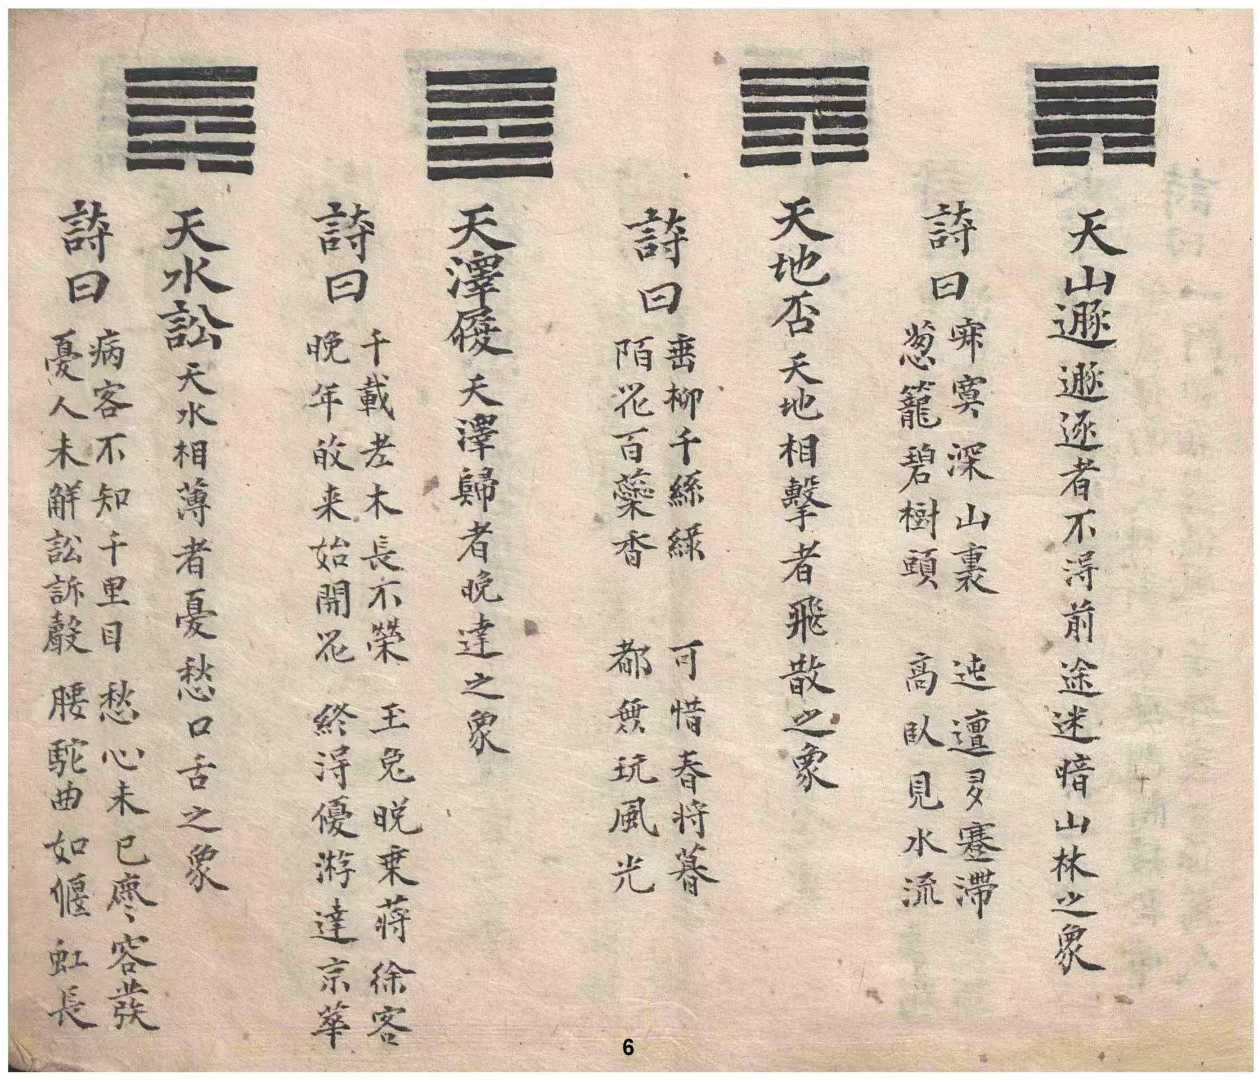 天山遯 遯逐者不得前途迷暗山林之象
詩曰
寂寞深山裏 迍邅多蹇滯
葱籠碧樹頭 高臥見水流
天地否 天地相擊者飛散之象
詩曰
垂柳千絲綠 可惜春將暮
陌花百蘂香 都無玩風光
天澤履 天澤歸者晚達之象
詩曰
千載老木長不榮 玉兔晚乗蔣徐客
晚年敀来始開花 終得優游達京華
天水訟 天水相薄者憂愁口舌之象
詩曰
病客不知千里目 愁心未已廖容發
憂人未解訟訴聲 腰駝曲如偃虹長
6